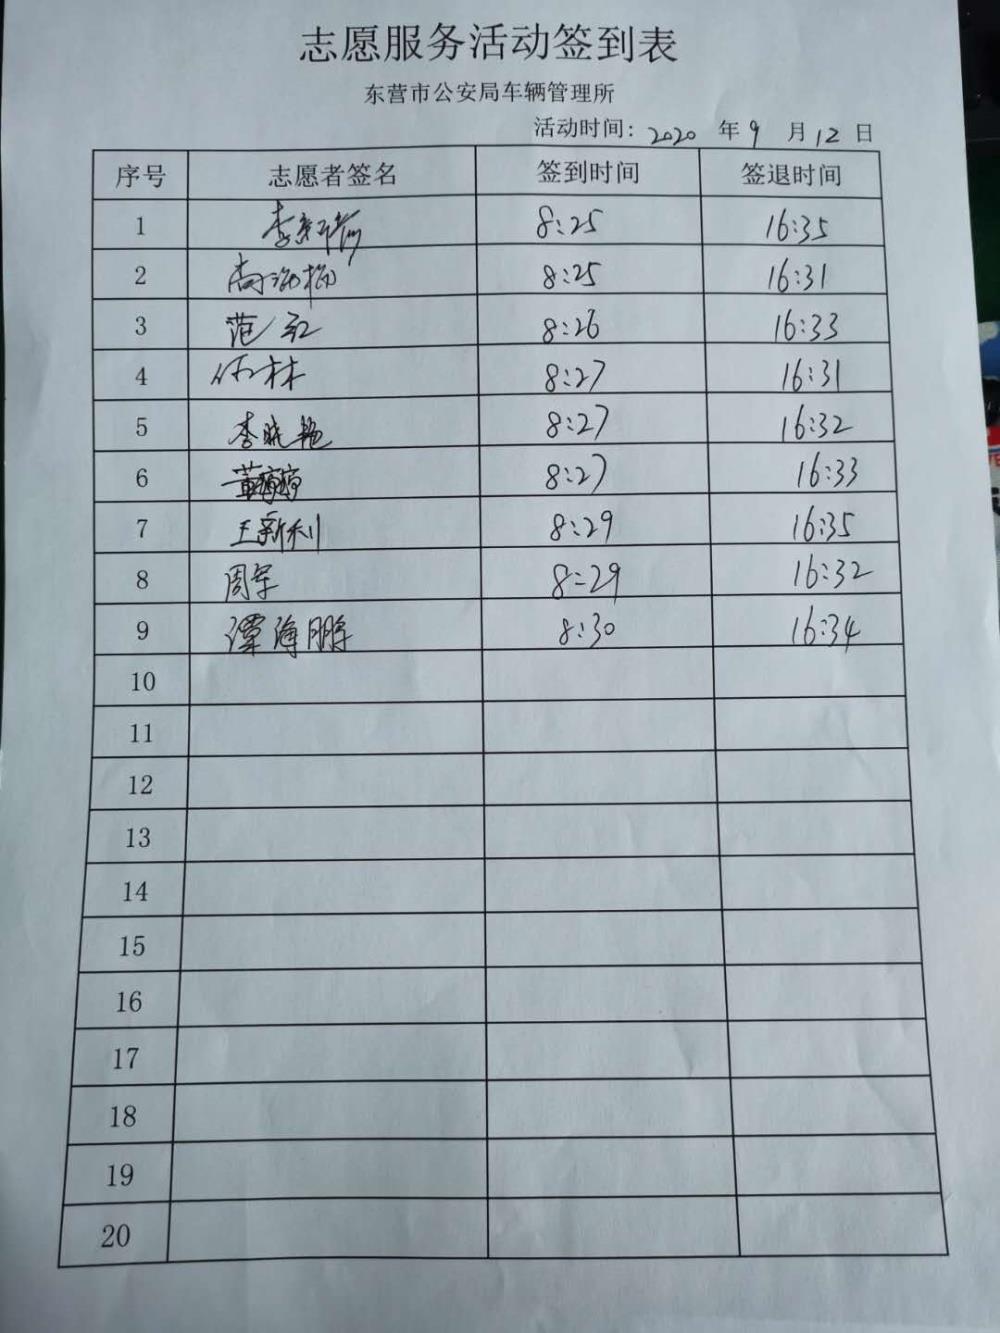 志愿服务活动签到表
东营市公安局车辆管理所
活动时间: 2020 年 9 月 12 日
序号 志愿者签名 签到时间 签退时间
1 8:25 16:35
2 8:25 16:31
3 范红 8:26 16:33
4 林 8:27 16:31
5 李晓艳 8:27 16:32
6 董婷婷 8:27 16:33
7 王新利 8:29 16:35
8 周军 8:29 16:32
9 谭海鹏 8:30 16:34
10
11
12
13
14
15
16
17
18
19
20